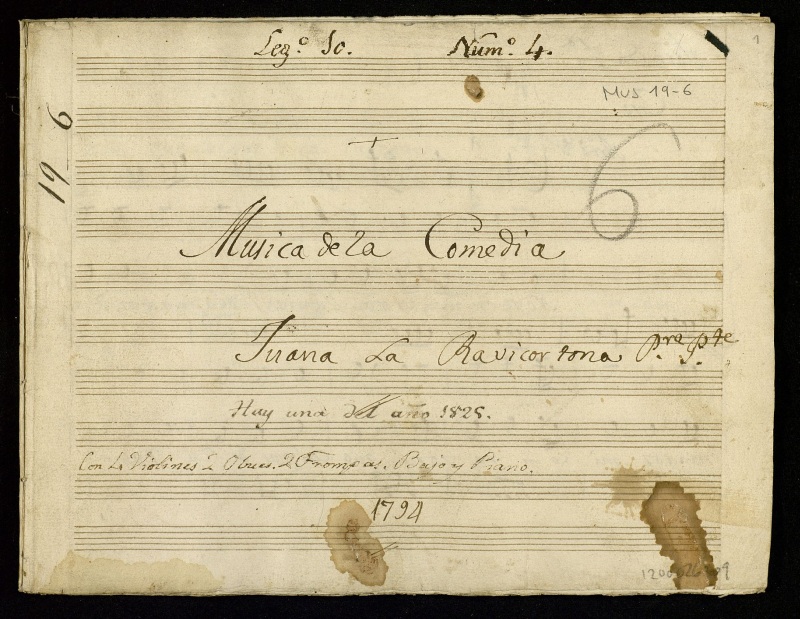 Leg.º 10. Num.º 4.
1
MUS 19-6
19-6
6
Musica de la Comedia
Juana La Ravicortona P.ra P.te
Hay una del año 1825.
Con 4 Violines 2 Obues. 2. Trompas. Bajo y Piano.
1794